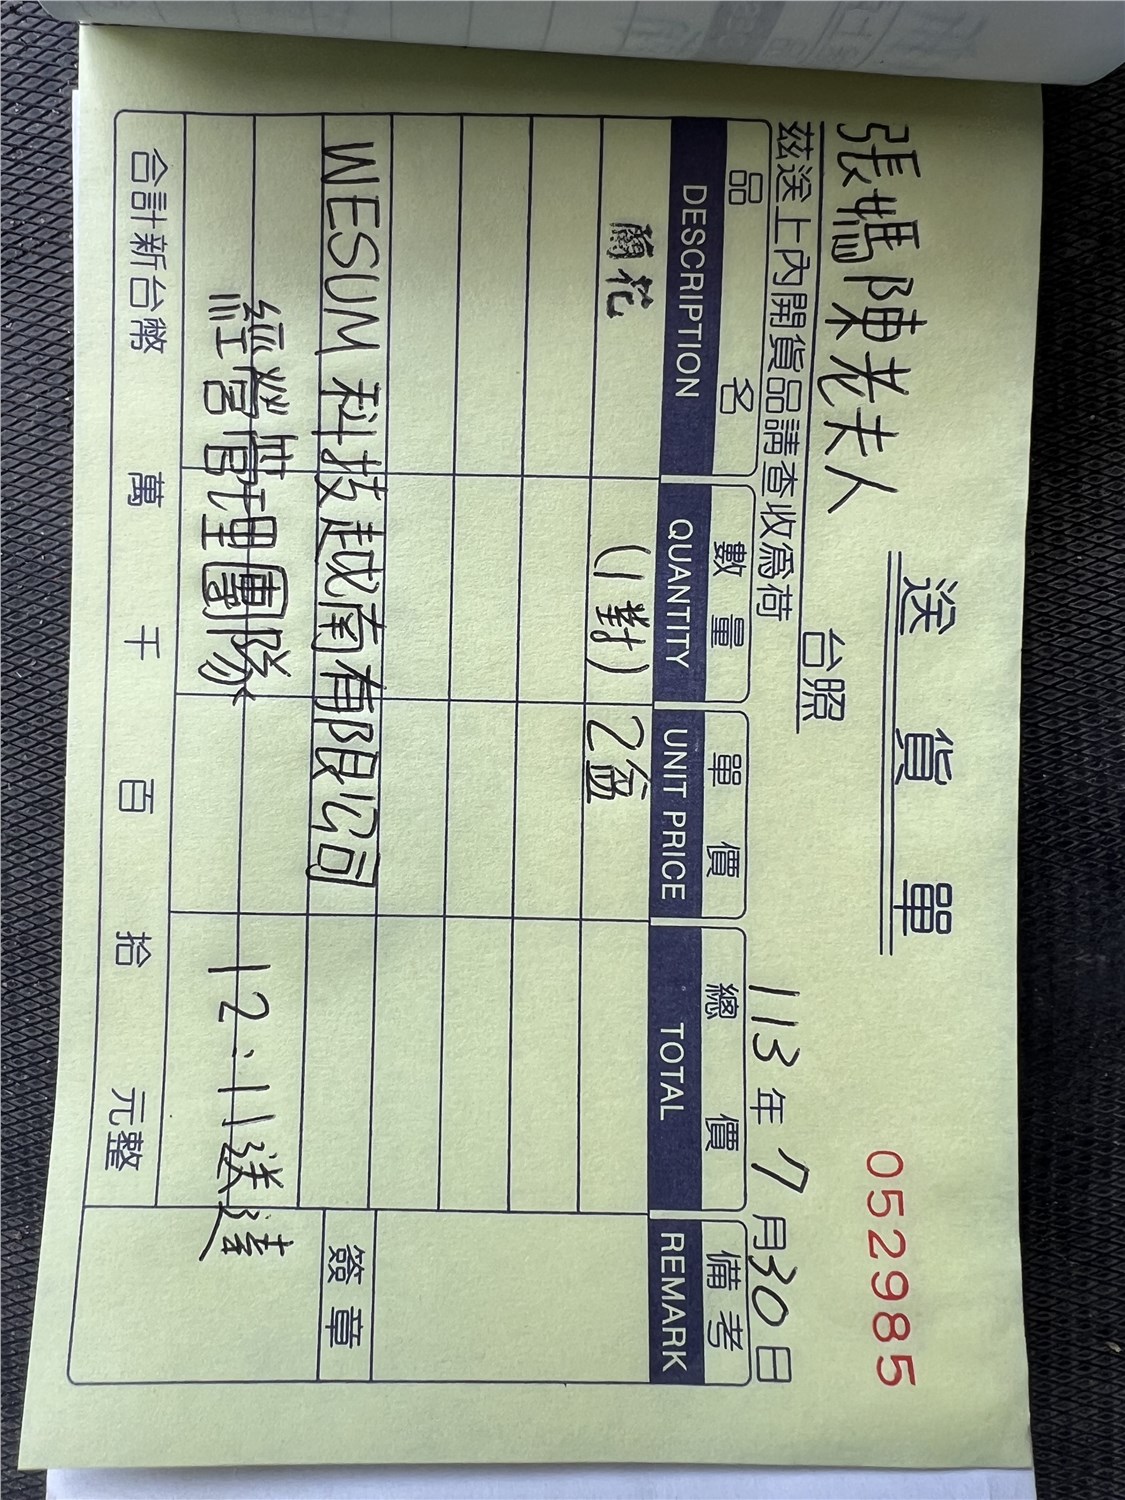 送貨單
052985
張媽陳老夫人 台照
113年7月30日
茲送上內開貨品請查收為荷
品名 數量 單價 總價 備考
DESCRIPTION QUANTITY UNIT PRICE TOTAL REMARK
蘭花 (1對) 2盆
WESUM 科技越南有限公司
簽章
經營管理團隊 12:11送達
合計新台幣 萬 千 百 拾 元整